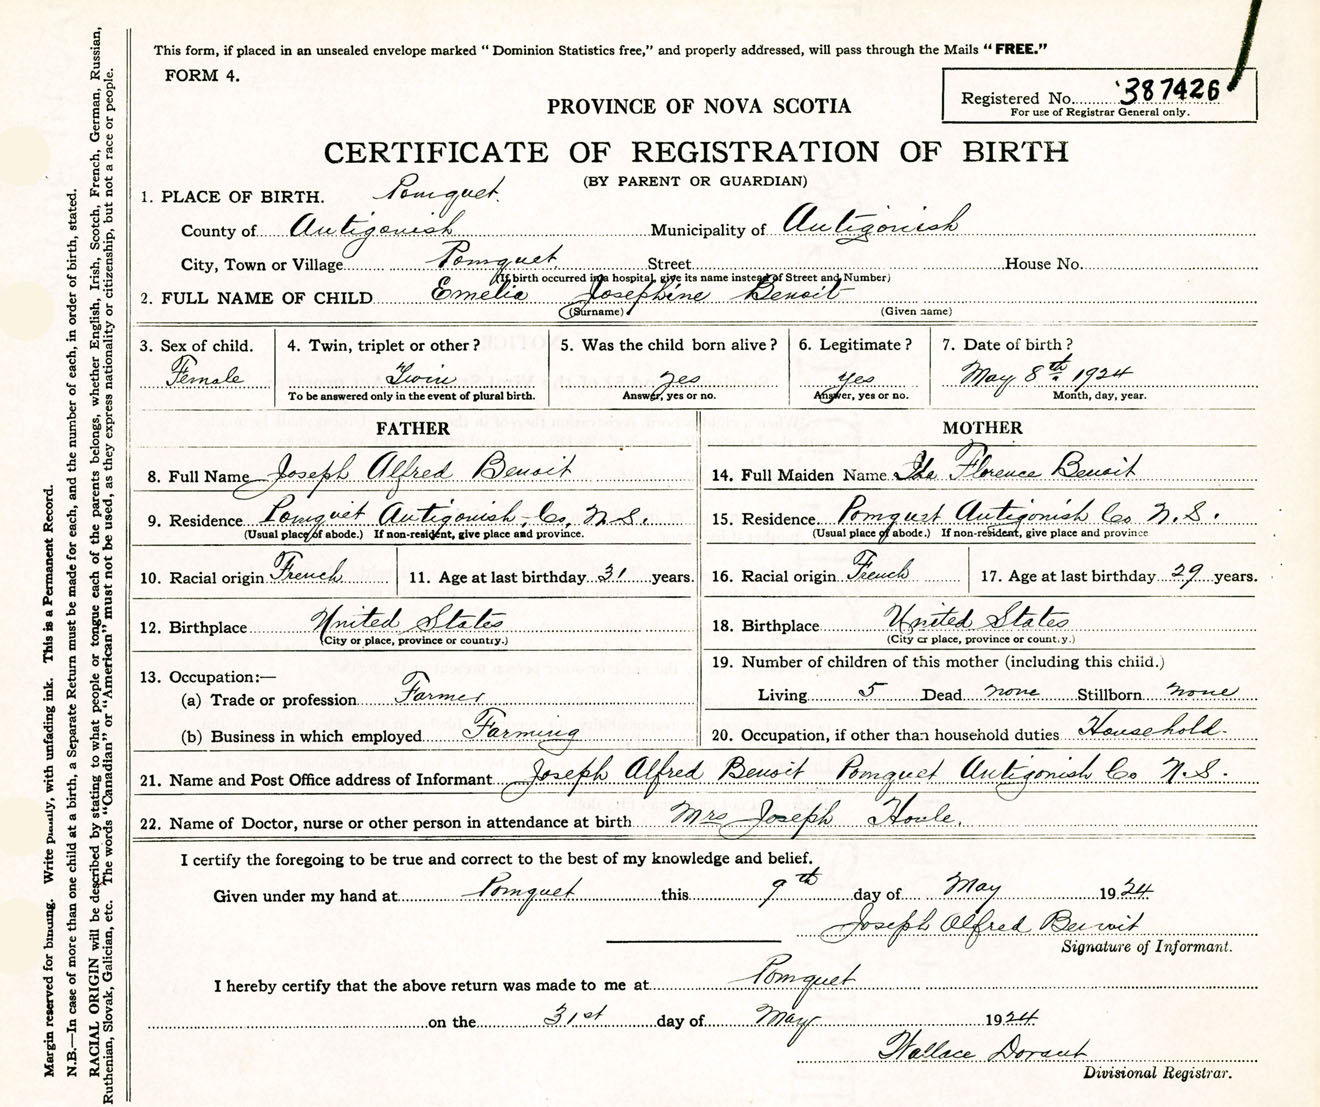 This form, if placed in an unsealed envelope marked “Dominion Statistics free,” and properly addressed, will pass through the Mails “FREE.”
FORM 4.
Registered No. 387426
For use of Registrar General only.
PROVINCE OF NOVA SCOTIA
CERTIFICATE OF REGISTRATION OF BIRTH
(BY PARENT OR GUARDIAN)
1. PLACE OF BIRTH. Pomquet.
County of Antigonish Municipality of Antigonish
City, Town or Village Pomquet Street House No.
(If birth occurred in a hospital, give its name instead of Street and Number)
2. FULL NAME OF CHILD Emelia Josephine Benoit
(Surname) (Given name)
3. Sex of child. 4. Twin, triplet or other? 5. Was the child born alive? 6. Legitimate? 7. Date of birth?
Female Twin yes yes May 8th 1924
To be answered only in the event of plural birth. Answer, yes or no. Answer, yes or no. Month, day, year.
FATHER
8. Full Name Joseph Alfred Benoit
9. Residence Pomquet Antigonish, Co, N.S.
(Usual place of abode.) If non-resident, give place and province.
10. Racial origin French 11. Age at last birthday 31 years.
12. Birthplace United States
(City or place, province or country.)
13. Occupation:—
(a) Trade or profession Farmer
(b) Business in which employed Farming
MOTHER
14. Full Maiden Name Ida Florence Benoit
15. Residence Pomquet Antigonish Co N.S.
(Usual place of abode.) If non-resident, give place and province
16. Racial origin French 17. Age at last birthday 29 years.
18. Birthplace United States
(City or place, province or country.)
19. Number of children of this mother (including this child.)
Living 5 Dead none Stillborn none
20. Occupation, if other than household duties Household.
21. Name and Post Office address of Informant Joseph Alfred Benoit Pomquet Antigonish Co N.S.
22. Name of Doctor, nurse or other person in attendance at birth Mrs Joseph Houle.
I certify the foregoing to be true and correct to the best of my knowledge and belief.
Given under my hand at Pomquet this 9th day of May 1924
Joseph Alfred Benoit
Signature of Informant.
I hereby certify that the above return was made to me at Pomquet
on the 31st day of May 1924
Wallace Dorant
Divisional Registrar.
Margin reserved for binding. Write plainly, with unfading ink. This is a Permanent Record.
N.B.—In case of more than one child at a birth, a Separate Return must be made for each, and the number of each, in order of birth, stated.
RACIAL ORIGIN will be described by stating to what people or tongue each of the parents belongs, whether English, Irish, Scotch, French, German, Russian,
Ruthenian, Slovak, Galician, etc. The words “Canadian” or “American” must not be used, as they express nationality or citizenship, but not a race or people.